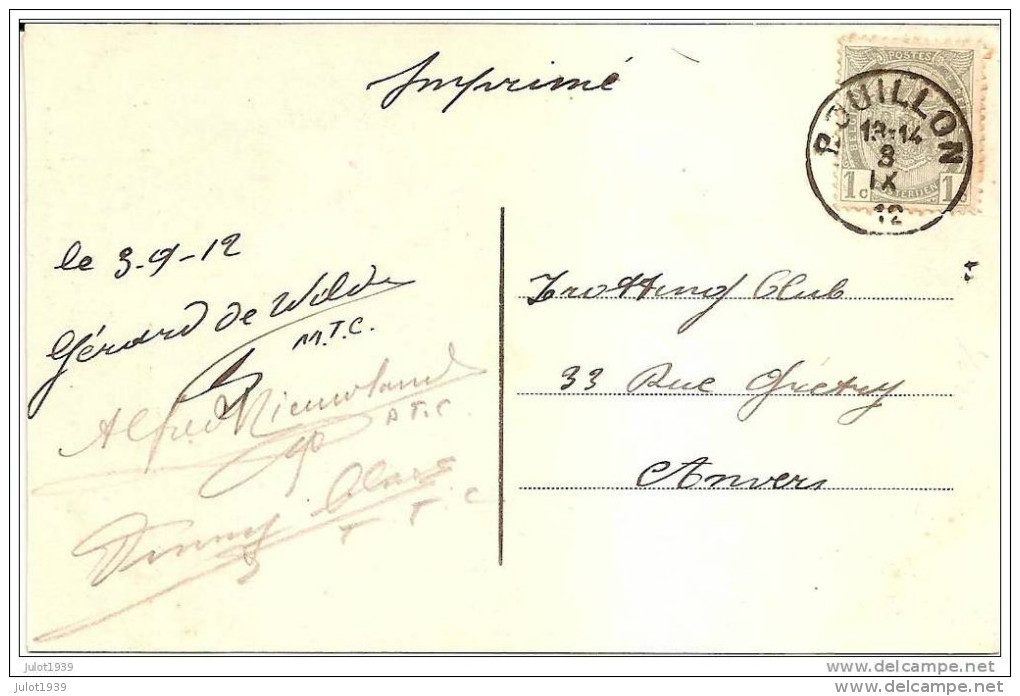 Imprimé
POSTES
BOUILLON
13-14
8
IX
12
1c
1c
le 3-9-12
Gérard de Wilde
M.T.C.
Alfred Nieuwland
A T.C.
T T C
Trotting Club
33 Rue Grétry
Anvers
julot1939
julot1939
www.delcampe.net
www.delcampe.net